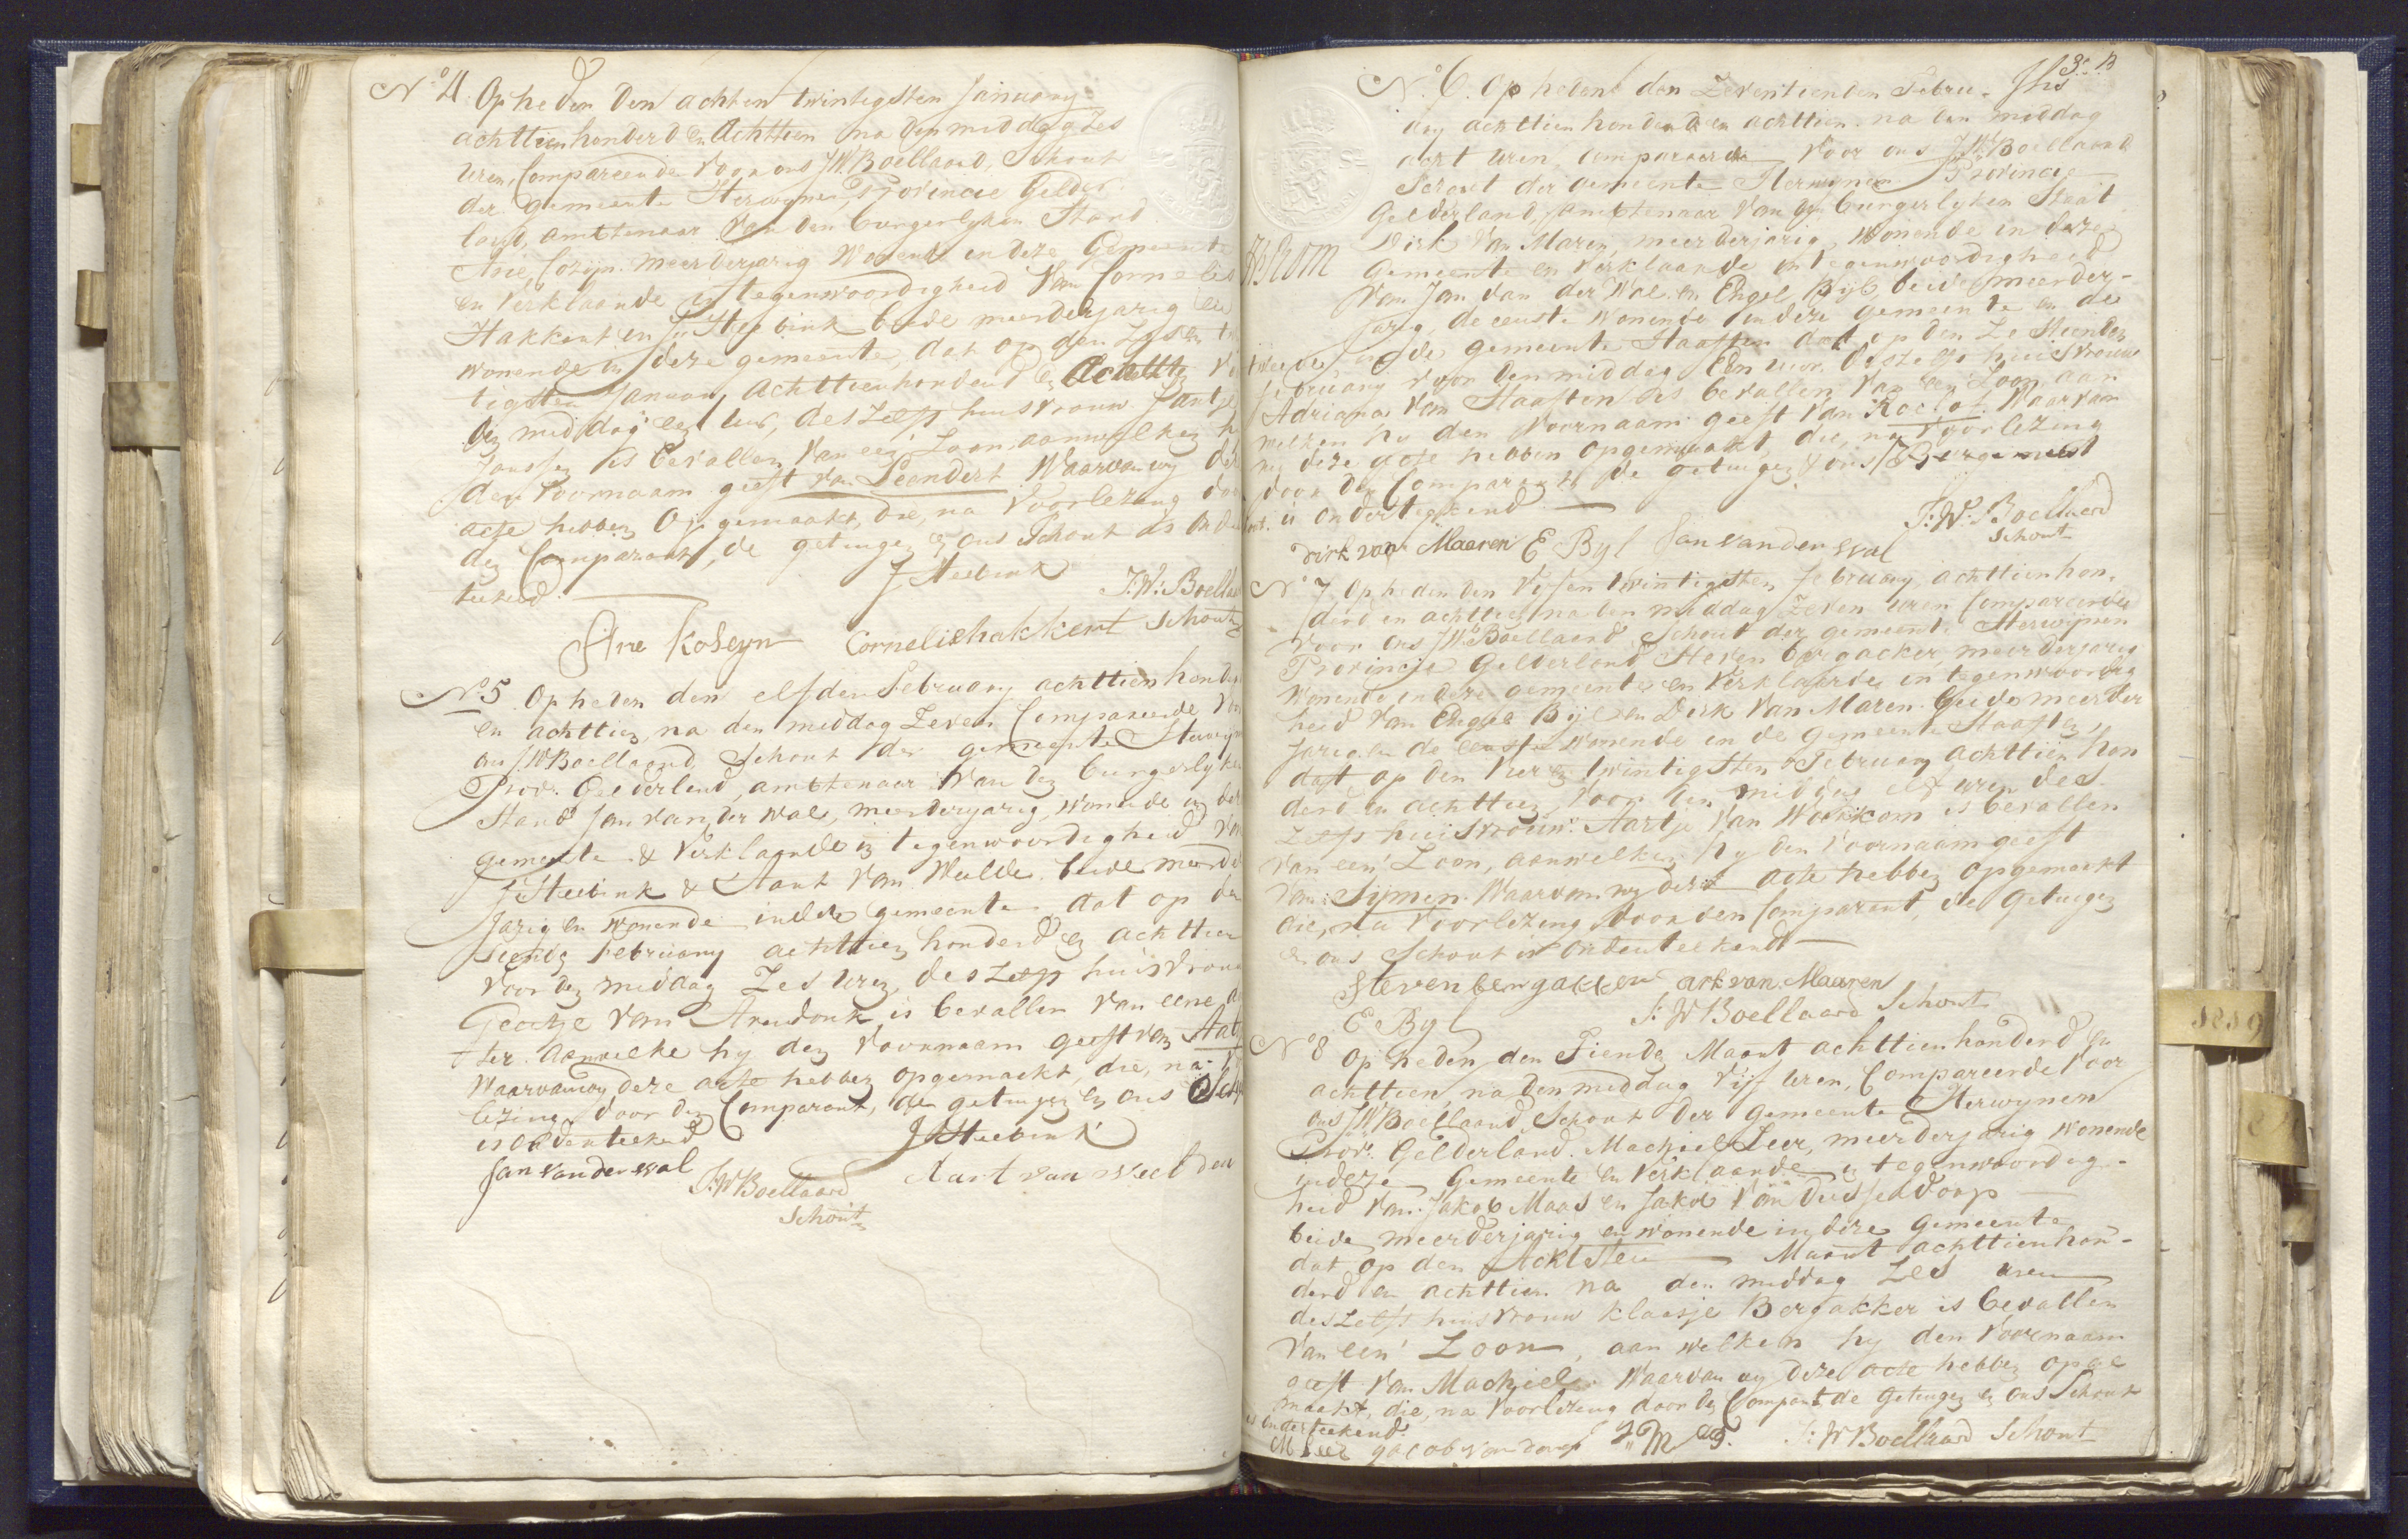 No 4. Op heden den achten twintigsten January
achttienhonderd en Achttien na den middag zes
uren, Compareerde voor ons J.W. Boellaard, Schout
der gemeente Herwynen, Provincie Gelder
land, amttenaar van den burgerlyken Stand
Arie Cozijn meerderjarig wonende in deze Gemeente
en verklaarde in tegenwoordigheid van Cornelis
Hakkert en J Steebink beide meerderjarig en
wonende in deze gemeente, dat op den
tigsten January Achttienhonderd en Achttien
den middag een uur, deszelfs huisvrouw Jantje
Janssen is bevallen van een Zoon, aanwelken h
den voornaam geeft van Leendert Waarvan wy de
acte hebben Opgemaakt, die, na Voorlezing doo
den Comparant, de getuigen en ons Schout is Onde
teekend.
J Steebink
J:W: Boellaa
Schout
Arie Koseyn
Cornelis hakkert
No 5 Op heden den elfden February achttienhonde
en achttien, na den middag Zeven Compareerde vo
ons J.W Boellaard Schout der gemeente Herwyn
Prov: Gelderland, amttenaar van den burgerlyke
Stand Jan van der Wal, meerderjarig, wonende in de
gemeente & verklaarde in tegenwoordigheid va
J Steebink & Aart van Welde beide meerde
jarig en wonende in deze gemeente dat op de
tiende February achttien honderd en achttien
voor den middag Zes uren, deszelfs huisvrouw
Geertje van Arendonk is bevallen van eene d
ter aanwelke hy den voornaam geeft van
Waarvan wy deze acte hebben opgemaakt, die, na
lezing door den Comparant, de getuigen en ons Scho
is Onderteekend
J Steebink
Jan van der wal
J:W Boellaard
Schout
Aart van weelden
3: B
No 6. Op heden den Zeventienden Febru-
ary achttienhonderd en achttien na den middag
acht uren compareerde voor ons J.W. Boellaard
Schout der Gemeente Herwynen Provincie
Gelderland, amttenaar van den burgerlyken Staat
Dirk van Maren, meerderjarig, wonende in deze
Gemeente en verklaarde in tegenwoordigheid
van Jan van der Wal en Engel Byl, beide meerder-
jarig, de eerste wonende in deze gemeente en de
tweede in de gemeente Haaften dat op den Zestienden
february voor den middag Een uur deszelfs huisvrouw
Adriana van Haaften is bevallen van een Zoon, aan
welken hy den voornaam geeft van Roelof. Waarvan
wy deze acte hebben opgemaakt, die, na voorlezing
door den Comparant de getuigen & ons
is onderteekend.
J:W: Boellaard
Schout
Dirk van Maaren E Byl Jan van der wal
No 7 Op heden den Vyfen twintigsten february achttienhon-
derd en achttien na den middag Zeven uren Compareerde
voor ons J.W. Boellaard Schout der gemeente Herwijnen
Provincie Gelderland Steven bergacker, meerderjarig
wonende in deze gemeente en verklaarde in tegenwoordig
heid van Engel Byl en Dirk van Maren beide meerder
jarig en de eerste wonende in de gemeente Haaften
dat op den vier en twintigsten February achttien hon
derd en achttien, voor den middag elf uren des
zelfs huisvrouw Aartje van Workkom is bevallen
van een Zoon, aanwelken hy den voornaam geeft
van Symen. Waarvan wy deze acte hebben opgemaakt
die, na Voorlezing door den Comparant, de Getuigen
en ons Schout is Onderteekend
Steven bergakker Dirk van Maaren
E Byl
J: W Boellaard Schout
No 8 Op heden den Tienden Maart achttienhonderd en
achttien, na den middag Vijf uren, Compareerde voor
ons J.W Boellaard Schout der Gemeente Herwynen
Prov: Gelderland. Machiel Leer, meerderjarig wonende
in deze Gemeente en verklaarde in tegenwoordig-
heid van Jakob Maas en Jakob van Dusseldorp
beide meerderjarig en wonende in deze Gemeente
dat op den Achtsten Maart achttienhon-
derd en achttien na den middag Zes uren
deszelfs huisvrouw Klaasje Bergakker is bevallen
van een' Zoon, aan welken hy den Voornaam
geeft van Machiel. Waarvan wy deze acte hebben opge
maakt, die, na Voorlezing door den Compart de Getuigen en ons Schout
is Onderteekend.
M Leer Jacob van dorp J: W Boellaard Schout